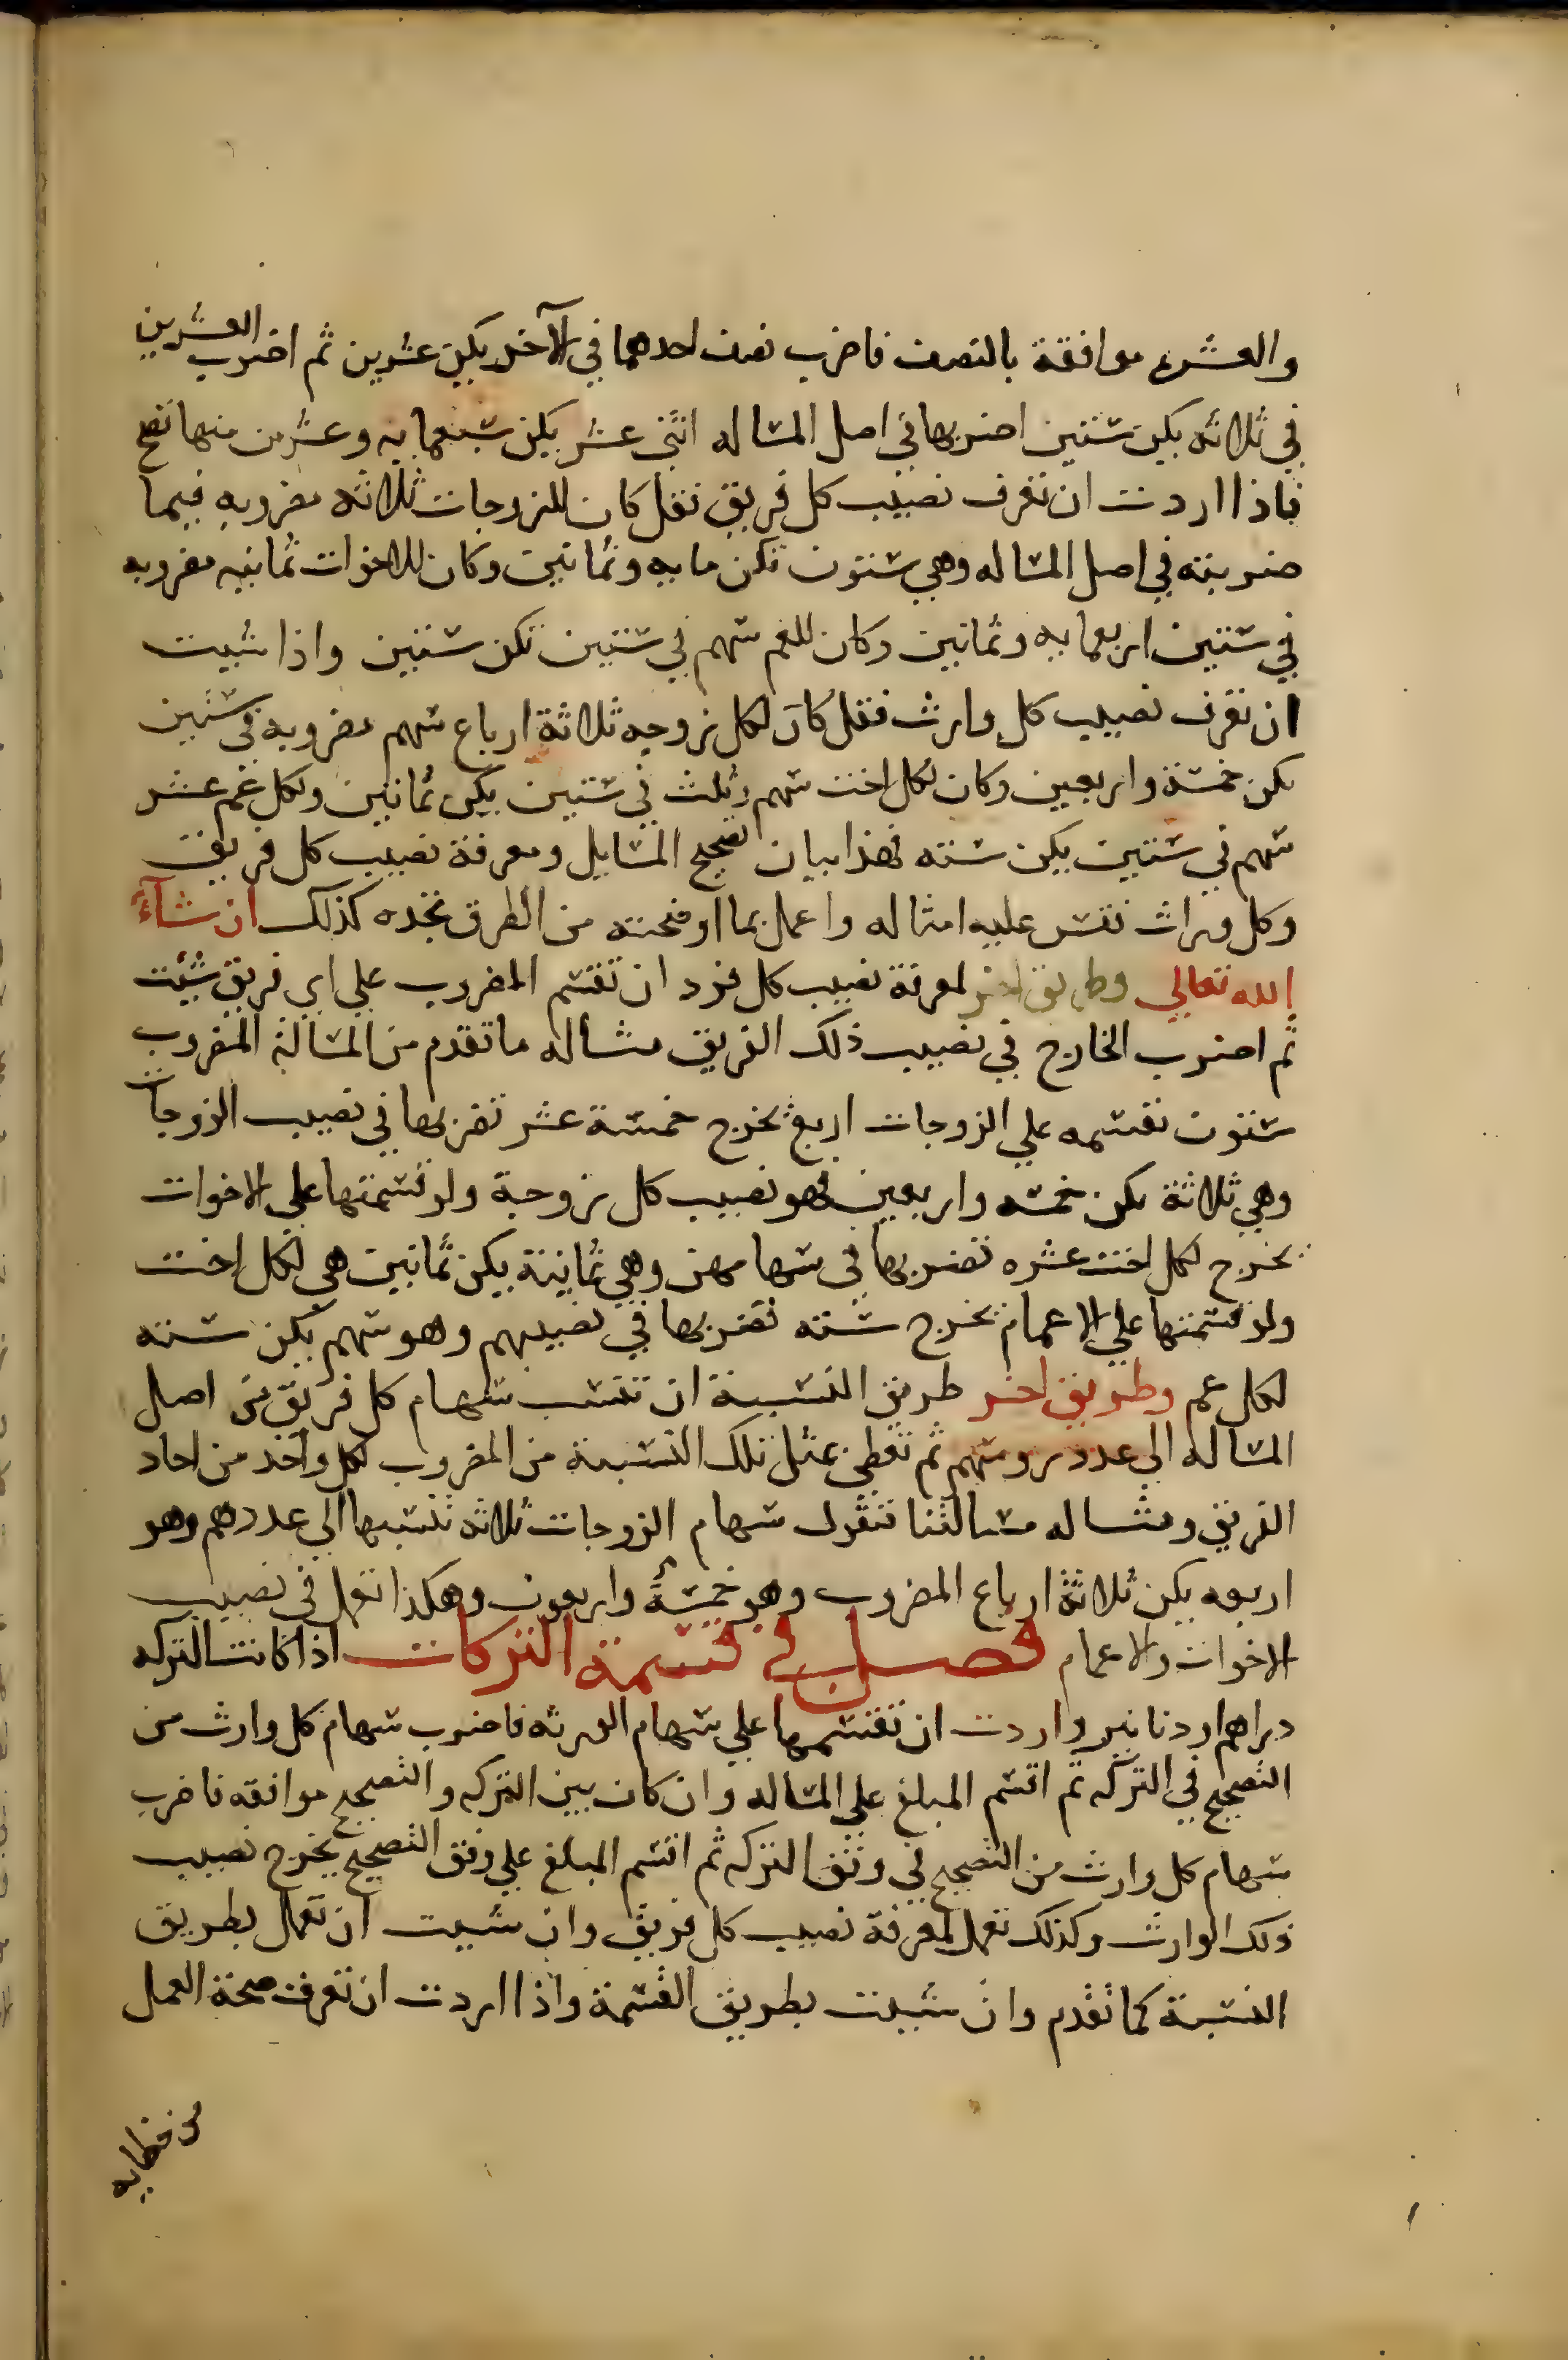 والعشره موافقة بالنصف فاضرب نصف احدهما في الآخر يكن عشرين ثم اضرب العشرين
في ثلاثه يكن ستين اضربها في اصل المساله اثنى عشر يكن سبعمايه وعشرين منها تصح
فاذا اردت ان تعرف نصيب كل فريق تقل كان للزوجات ثلاثه مضروبه فيما
ضربته في اصل المساله وهي ستون تكن مايه وثمانين وكان للاخوات ثمانيه مضروبه
في ستين اربعمايه وثمانين وكان للعم سهم في ستين تكن ستين واذا شيت
ان تعرف نصيب كل وارث فقل كان لكل زوجه ثلاثة ارباع سهم مضروبه في ستين
يكن خمسة واربعين وكان لكل اخت سهم وثلث في ستين يكن ثمانين ولكل عم عشر
سهم في ستين يكن سته فهذا بيان تصحيح المسايل ومعرفة نصيب كل فريق
وكل وراث نقس عليه امثاله واعمل بما اوضحته من الطرق تجده كذلك ان شآء
الله تعالي وطريق اخر لمعرفة نصيب كل فرد ان تقسم المضروب علي اي فريق شئت
ثم اضرب الخارج في نصيب ذلك الفريق مثاله ما تقدم من المسالة المضروب
ستون تقسمه علي الزوجات اربع يخرج خمسة عشر تضربها في نصيب الزوجات
وهي ثلاثة يكن خمسه واربعين فهو نصيب كل زوجة ولو قسمتها علي الاخوات
يخرج لكل اخت عشره تضربها في سهامهن وهي ثمانية يكن ثمانين هي لكل اخت
ولو قسمتها علي الاعمام يخرج سته تضربها في نصيبهم وهو سهم يكن سته
لكل عم وطريق اخر طريق النسبة ان تنسب سهام كل فريق من اصل
المساله الي عدد روسهم ثم تعطي بمثل تلك النسبة من المضروب لكل واحد من احاد
الفريق ومثاله مسالتنا فنقول سهام الزوجات ثلاثه تنسبها الي عددهم وهو
اربعه يكن ثلاثة ارباع المضروب وهو خمسة واربعون وهكذا تعمل في نصيب
الاخوات والاعمام فصل في قسمة التركات اذا كانت التركه
دراهم او دنانير واردت ان تقسمها علي سهام الورثه فاضرب سهام كل وارث من
التصحيح في التركه ثم اقسم المبلغ على المساله وان كان بين التركه والتصحيح موافقه فاضرب
سهام كل وارث من التصحيح في وفق التركه ثم اقسم المبلغ علي وفق التصحيح يخرج نصيب
ذلك الوارث وكذلك تعمل لمعرفة نصيب كل فريق وان شيت ان تعمل بطريق
النسبة كما تقدم وان شيت بطريق القسمة واذا اردت ان تعرف صحة العمل